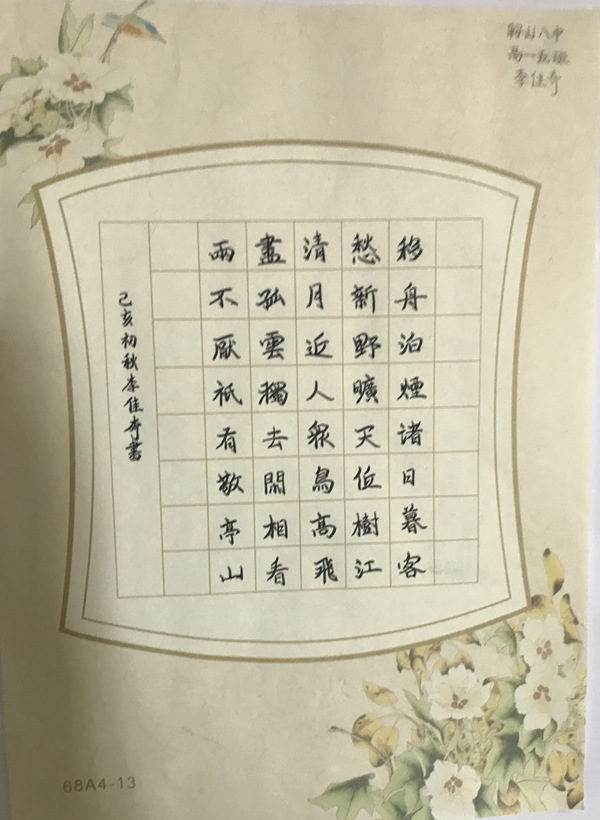 移舟泊煙诸日暮客
愁新野曠天低樹江
清月近人眾鳥高飛
盡孤雲獨去閑相看
兩不厭祇有敬亭山
己亥初秋李佳奇書
高一五班
李佳奇
68A4-13